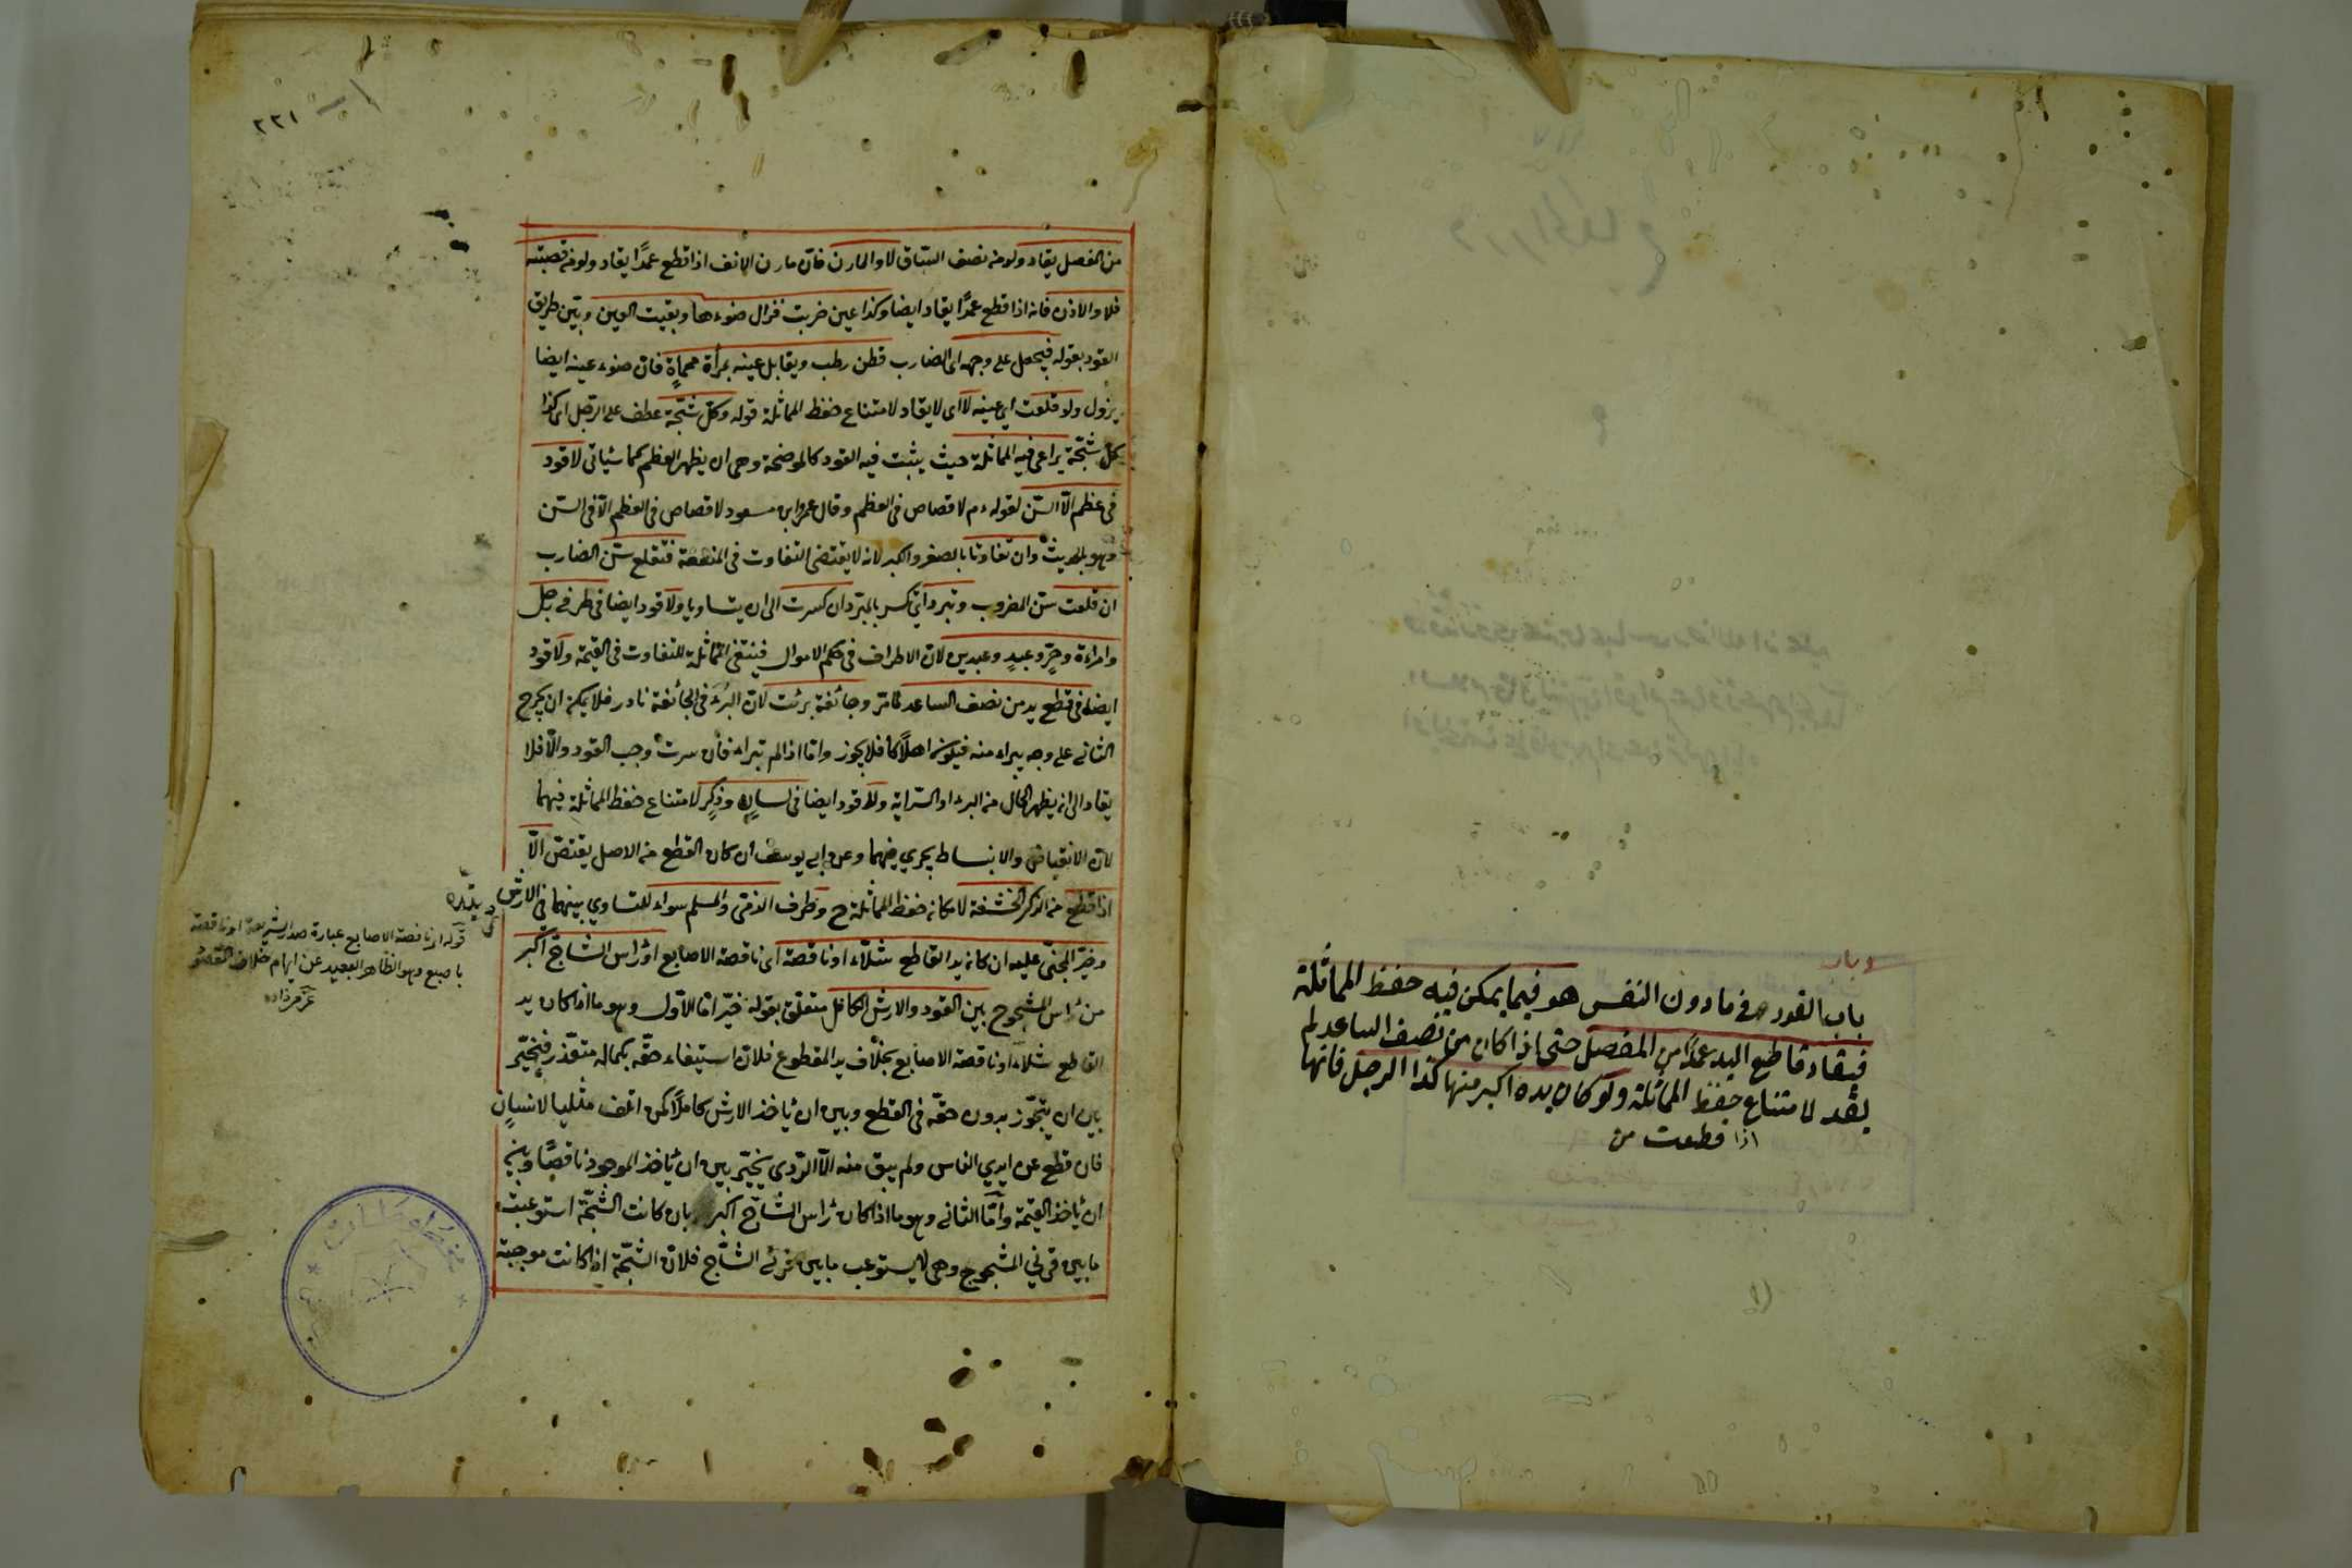 وباب
باب القود في ما دون النفس هو فيما يمكن فيه حفظ المماثلة
فيقاد قاطع اليد عمدًا من المفصل حتى اذا كان من نصف الساعد لم
يقد لامتناع حفظ المماثلة ولو كان يده اكبر منها كذا الرجل فانها
اذا قطعت من
٢٢١
من المفصل يقاد ولو من نصف الساق لا والمارن فان مارن الانف اذا قطع عمدًا يقاد ولو من قصبته
فلا والاذن فانه اذا قطع عمدًا يقاد ايضا وكذا عين ضربت فزال ضوءها وبقيت العين وبين طريق
القود بقوله فيجعل على وجهه اي الضارب قطن رطب ويقابل عينه بمرأة محماة فان ضوء عينه ايضا
يزول ولو قلعت اي عينه لا اي لا يقاد لامتناع حفظ المماثلة قوله وكل شجّة عطف على الرجل اي كذا
كل شجّة يراعى فيه المماثلة حيث يثبت فيه القود كالموضحة وهي ان يظهر العظم كما سياتي لا قود
في عظم الّا السّن لقوله ءم لا قصاص في العظم وقال عمر وابن مسعود لا قصاص في العظم الّا في السّن
وهو بالحديث وان تفاوتا بالصغر والكبر لانه لا يقتضي التفاوت في المنفعة فتقلع سنّ الضارب
ان قلعت سنّ المضروب وتبرد اي تكسر بالمبرد ان كسرت الى ان يتساويا ولا قود ايضا في طرفي رجل
وامراءة وحرّ وعبد وعبدين لان الاطراف في حكم الاموال فينتفي المماثلة للتفاوت في القيمة ولا قود
ايضا في قطع يد من نصف الساعد لما مرّ وجائفة برئت لان البرء في الجائفة نادر فلا يمكن ان يجرح
الثاني على وجه يبراء منه فيكون اهلاكا فلا يجوز وامّا اذا لم تبراء فان سرت وجب القود والّا فلا
يقاد الى ان يظهر الحال من البرء او السّراية ولا قود ايضا في لسان وذكر لامتناع حفظ المماثلة فيهما
لان الانقباض والانبساط يجري فيهما وعن ابي يوسف ان كان القطع من الاصل يقتصّ الّا
اذا قطع من الذكر الحشفة لامكان حفظ المماثلة ح وطرف الذمّي والمسلم سواء للتساوي بينهما في الارش
وخيّر المجنيّ عليه ان كان يد القاطع شلّاء او ناقصة اي ناقصة الاصابع او راس الشاجّ اكبر
من راس المشجوج بين القود والارش الكامل متعلّق بقوله خيّر امّا الاوّل وهو ما اذا كان يد
القاطع شلاء او ناقصة الاصابع بخلاف يد المقطوع فلان استيفاء حقّه بكماله متعذّر فيخيّر
بين ان يتجوّز بدون حقّه في القطع وبين ان ياخذ الارش كاملًا كمن اتلف مثليا لانسان
فان قطع عن ايدي الناس ولم يبق منه الّا الرّدي يخيّر بين ان ياخذ الموجود ناقصًا وبين
ان ياخذ القيمة وامّا الثاني وهو ما اذا كان راس الشاجّ اكبر بان كانت الشجّة استوعبت
ما بين قرني المشجوج وهي لا يستوعب ما بين قرني الشاجّ فلان الشجّة اذا كانت موجبة
قوله او ناقصة الاصابع عبارة صدر الشريعة او ناقصة
باصبع وهو الظاهر البعيد عن ايهام خلاف المقصود
عزمي زاده